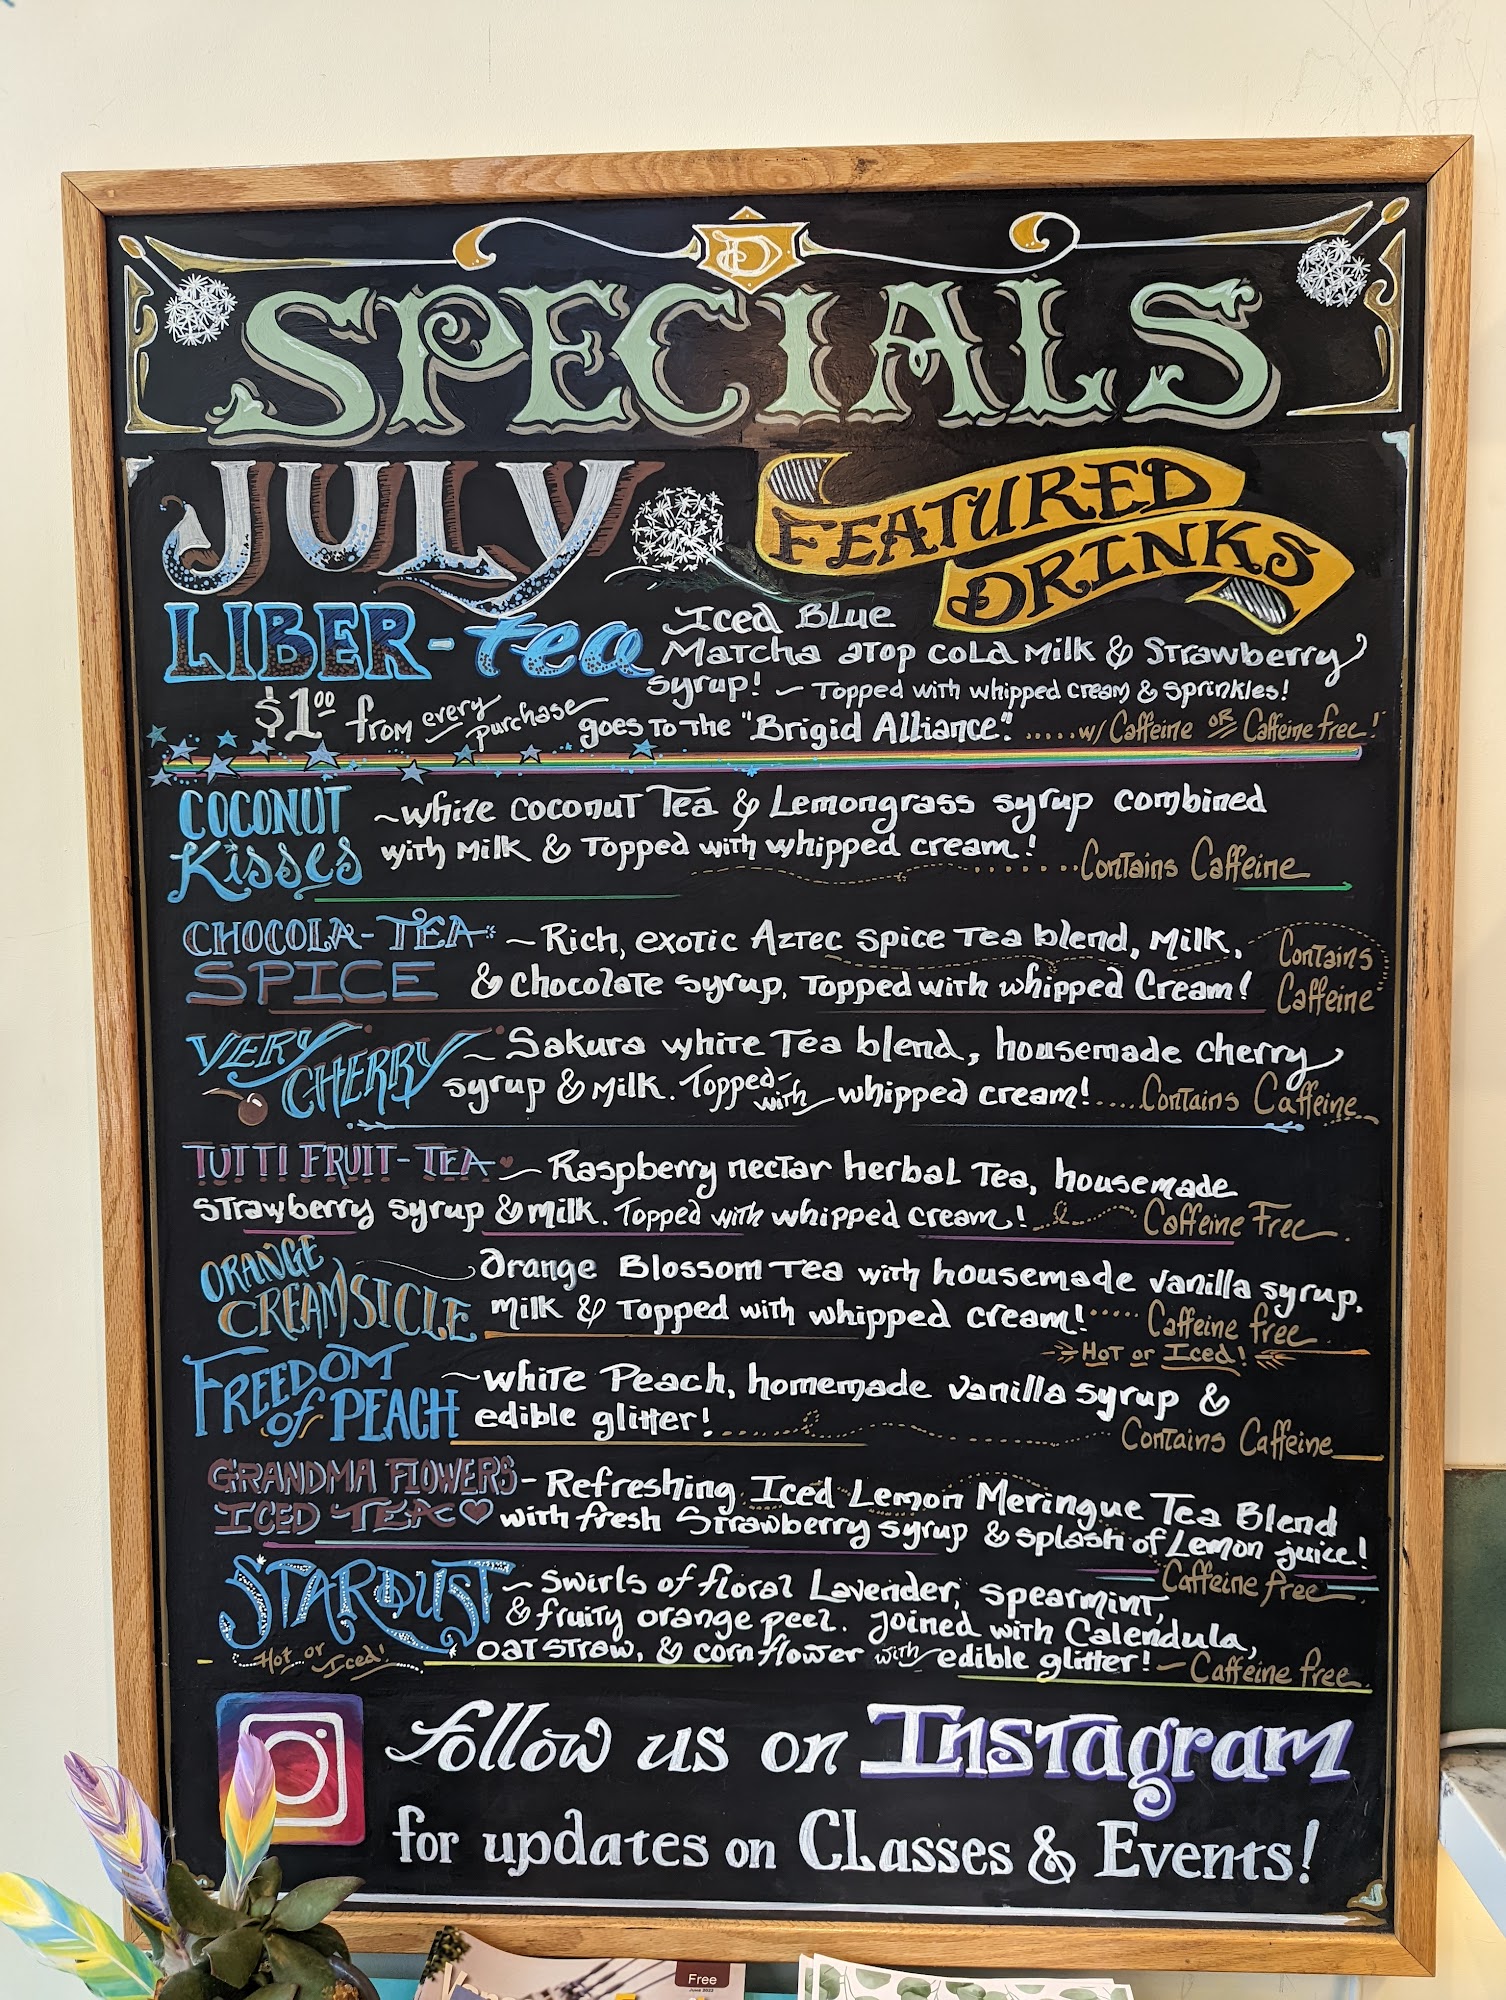 D
SPECIALS
JULY
FEATURED
DRINKS
LIBER-tea
Iced Blue
Matcha atop cold Milk & Strawberry
syrup! ~ Topped with whipped cream & sprinkles!
$1.00 from every purchase goes to the "Brigid Alliance". .....w/ Caffeine or Caffeine free!
COCONUT
Kisses
~White coconut Tea & Lemongrass syrup combined
with Milk & Topped with whipped cream!
.......Contains Caffeine
CHOCOLA-TEA
SPICE
~Rich, exotic Aztec spice Tea blend, Milk,
& chocolate syrup, Topped with whipped Cream!
Contains
Caffeine
VERY
CHERRY
~Sakura white Tea blend, housemade cherry
syrup & Milk. Topped with whipped cream!....Contains Caffeine
TUTTI FRUIT-TEA ~Raspberry nectar herbal Tea, housemade
strawberry syrup & milk. Topped with whipped cream! Caffeine Free.
ORANGE
CREAMSICLE
Orange Blossom Tea with housemade vanilla syrup,
milk & Topped with whipped cream!..... Caffeine free
Hot or Iced!
FREEDOM
of PEACH
~White Peach, homemade vanilla syrup &
edible glitter!
Contains Caffeine
GRANDMA FLOWERS
ICED TEA
-Refreshing Iced Lemon Meringue Tea Blend
with fresh Strawberry syrup & splash of Lemon juice!
Caffeine free
STARDUST
Hot or Iced!
~swirls of floral Lavender, spearmint,
& fruity orange peel. Joined with Calendula,
oatstraw, & cornflower with edible glitter!~Caffeine free.
follow us on Instagram
for updates on Classes & Events!
Free